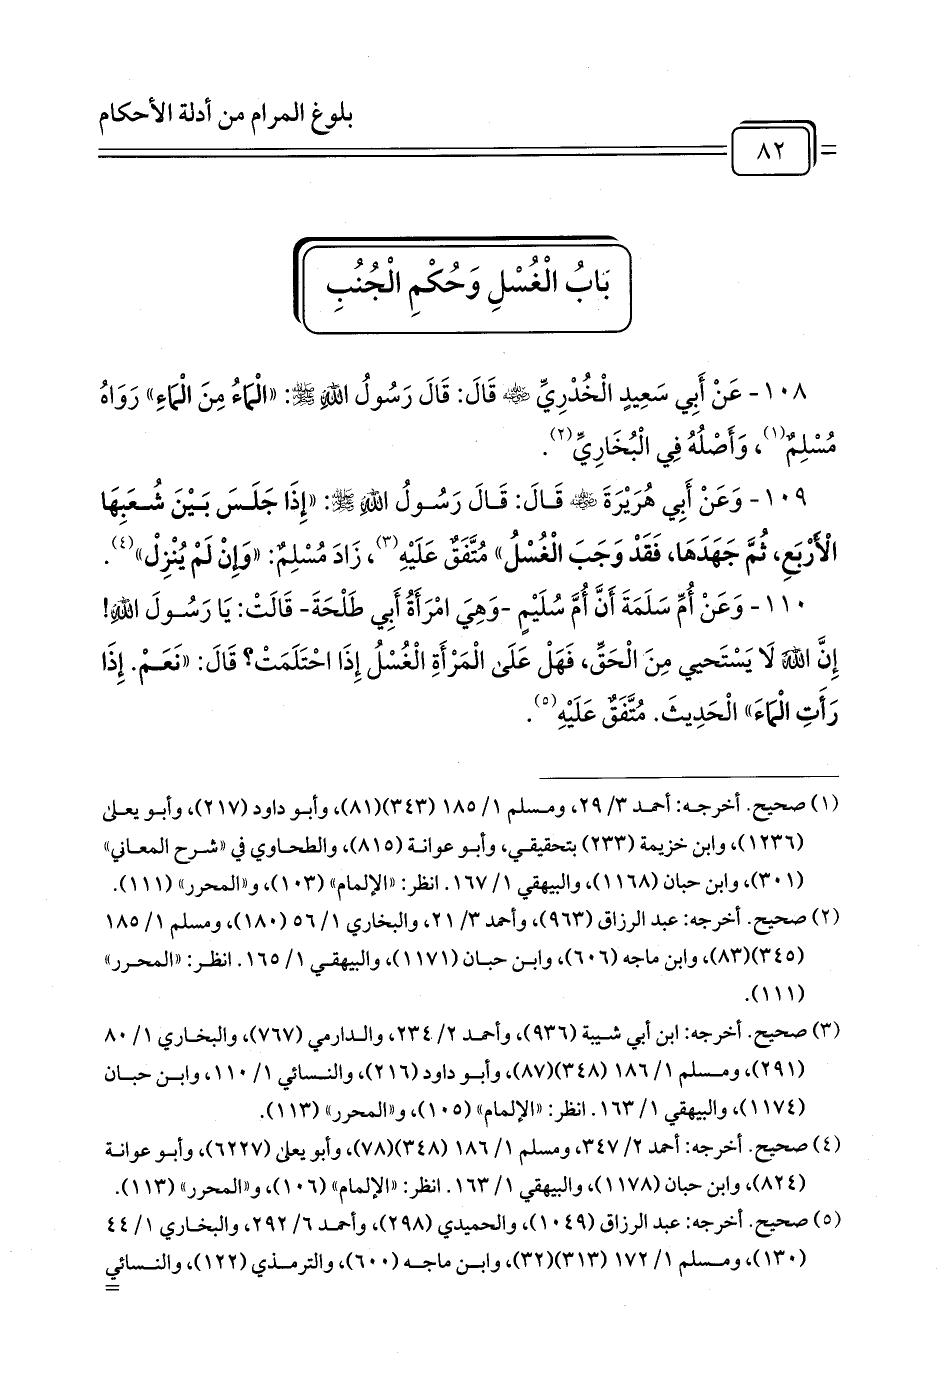 بلوغ المرام من أدلة الأحكام
٨٢
بَابُ الْغُسْلِ وَحُكْمِ الْجُنُبِ
١٠٨- عَنْ أَبِي سَعِيدٍ الْخُدْرِيِّ ﵁ قَالَ: قَالَ رَسُولُ اللهِ ﷺ: «الْمَاءُ مِنَ الْمَاءِ» رَوَاهُ
مُسْلِمٌ(١)، وَأَصْلُهُ فِي الْبُخَارِيِّ(٢).
١٠٩- وَعَنْ أَبِي هُرَيْرَةَ ﵁ قَالَ: قَالَ رَسُولُ اللهِ ﷺ: «إِذَا جَلَسَ بَيْنَ شُعَبِهَا
الْأَرْبَعِ، ثُمَّ جَهَدَهَا، فَقَدْ وَجَبَ الْغُسْلُ» مُتَّفَقٌ عَلَيْهِ(٣)، زَادَ مُسْلِمٌ: «وَإِنْ لَمْ يُنْزِلْ»(٤).
١١٠- وَعَنْ أُمِّ سَلَمَةَ أَنَّ أُمَّ سُلَيْمٍ -وَهِيَ امْرَأَةُ أَبِي طَلْحَةَ- قَالَتْ: يَا رَسُولَ اللهِ!
إِنَّ اللهَ لَا يَسْتَحْيِي مِنَ الْحَقِّ، فَهَلْ عَلَى الْمَرْأَةِ الْغُسْلُ إِذَا احْتَلَمَتْ؟ قَالَ: «نَعَمْ. إِذَا
رَأَتِ الْمَاءَ» الْحَدِيثَ. مُتَّفَقٌ عَلَيْهِ(٥).
(١) صحيح. أخرجه: أحمد ٣/ ٢٩، ومسلم ١/ ١٨٥ (٣٤٣)(٨١)، وأبو داود (٢١٧)، وأبو يعلى
(١٢٣٦)، وابن خزيمة (٢٣٣) بتحقيقي، وأبو عوانة (٨١٥)، والطحاوي في «شرح المعاني»
(٣٠١)، وابن حبان (١١٦٨)، والبيهقي ١/ ١٦٧. انظر: «الإلمام» (١٠٣)، و«المحرر» (١١١).
(٢) صحيح. أخرجه: عبد الرزاق (٩٦٣)، وأحمد ٣/ ٢١، والبخاري ١/ ٥٦ (١٨٠)، ومسلم ١/ ١٨٥
(٣٤٥)(٨٣)، وابن ماجه (٦٠٦)، وابن حبان (١١٧١)، والبيهقي ١/ ١٦٥. انظر: «المحرر»
(١١١).
(٣) صحيح. أخرجه: ابن أبي شيبة (٩٣٦)، وأحمد ٢/ ٢٣٤، والدارمي (٧٦٧)، والبخاري ١/ ٨٠
(٢٩١)، ومسلم ١/ ١٨٦ (٣٤٨)(٨٧)، وأبو داود (٢١٦)، والنسائي ١/ ١١٠، وابن حبان
(١١٧٤)، والبيهقي ١/ ١٦٣. انظر: «الإلمام» (١٠٥)، و«المحرر» (١١٣).
(٤) صحيح. أخرجه: أحمد ٢/ ٣٤٧، ومسلم ١/ ١٨٦ (٣٤٨)(٧٨)، وأبو يعلى (٦٢٢٧)، وأبو عوانة
(٨٢٤)، وابن حبان (١١٧٨)، والبيهقي ١/ ١٦٣. انظر: «الإلمام» (١٠٦)، و«المحرر» (١١٣).
(٥) صحيح. أخرجه: عبد الرزاق (١٠٤٩)، والحميدي (٢٩٨)، وأحمد ٦/ ٢٩٢، والبخاري ١/ ٤٤
(١٣٠)، ومسلم ١/ ١٧٢ (٣١٣)(٣٢)، وابن ماجه (٦٠٠)، والترمذي (١٢٢)، والنسائي
=